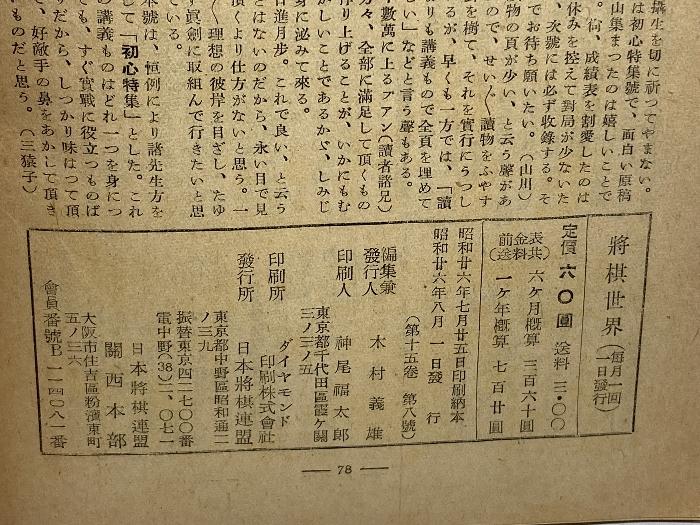 攝生を切に祈つてやまない。
は初心特集號で、面白い原稿
山集まつたのは嬉しいことで
。尚、成績表を割愛したのは
休みを控えて對局が少ないた
、次號には必ず收錄する。そ
でお待ち願いたい。（山川）
物の頁が少い、と云う聲があ
ので、せい〲讀物をふやす
を樹て、それを實行にうつし
るが、早くも一方では、「讀
よりも講義もので全頁を埋めて
しい」などと言う聲もある。
數萬に上るフアン（讀者諸兄）
方々、全部に滿足して頂くもの
作り上げることが、いかにもむ
しいことであるかゞ、しみじ
身に泌みて來る。
日進月步。これで良い、と云う
とはないのだから、永い目で見
頂くより仕方がないと思う。一
く理想の彼岸を目ざし、たゆ
ず眞劍に取組んで行きたいと思
ている。
本號は、恒例により諸先生方を
して「初心特集」とした。これ
の講義ものはどれ一つを身につ
ても、すぐ實戰に役立つものば
りだから、しつかり味はつて頂
て、好敵手の鼻をあかして頂き
ものだと思う。（三猿子）
將棋世界（每月一回一日發行）
定價 六〇圓 送料 三・〇〇
前金（送料共）表
六ケ月概算 三百六十圓
一ケ年概算 七百廿圓
昭和廿六年七月廿五日印刷納本
昭和廿六年八月一日發行
（第十五卷 第八號）
編集兼發行人 木村義雄
印刷人 神尾福太郎
東京都千代田區霞ケ關
三ノ三ノ五
印刷所 ダイヤモンド
印刷株式會社
發行所 日本將棋連盟
東京都中野區昭和通二
ノ三九
振替東京四二七〇〇番
電中野(38)二、〇七一
日本將棋連盟
關西本部
大阪市住吉區粉濱東町
五ノ三六
會員番號B一一四〇八一番
78